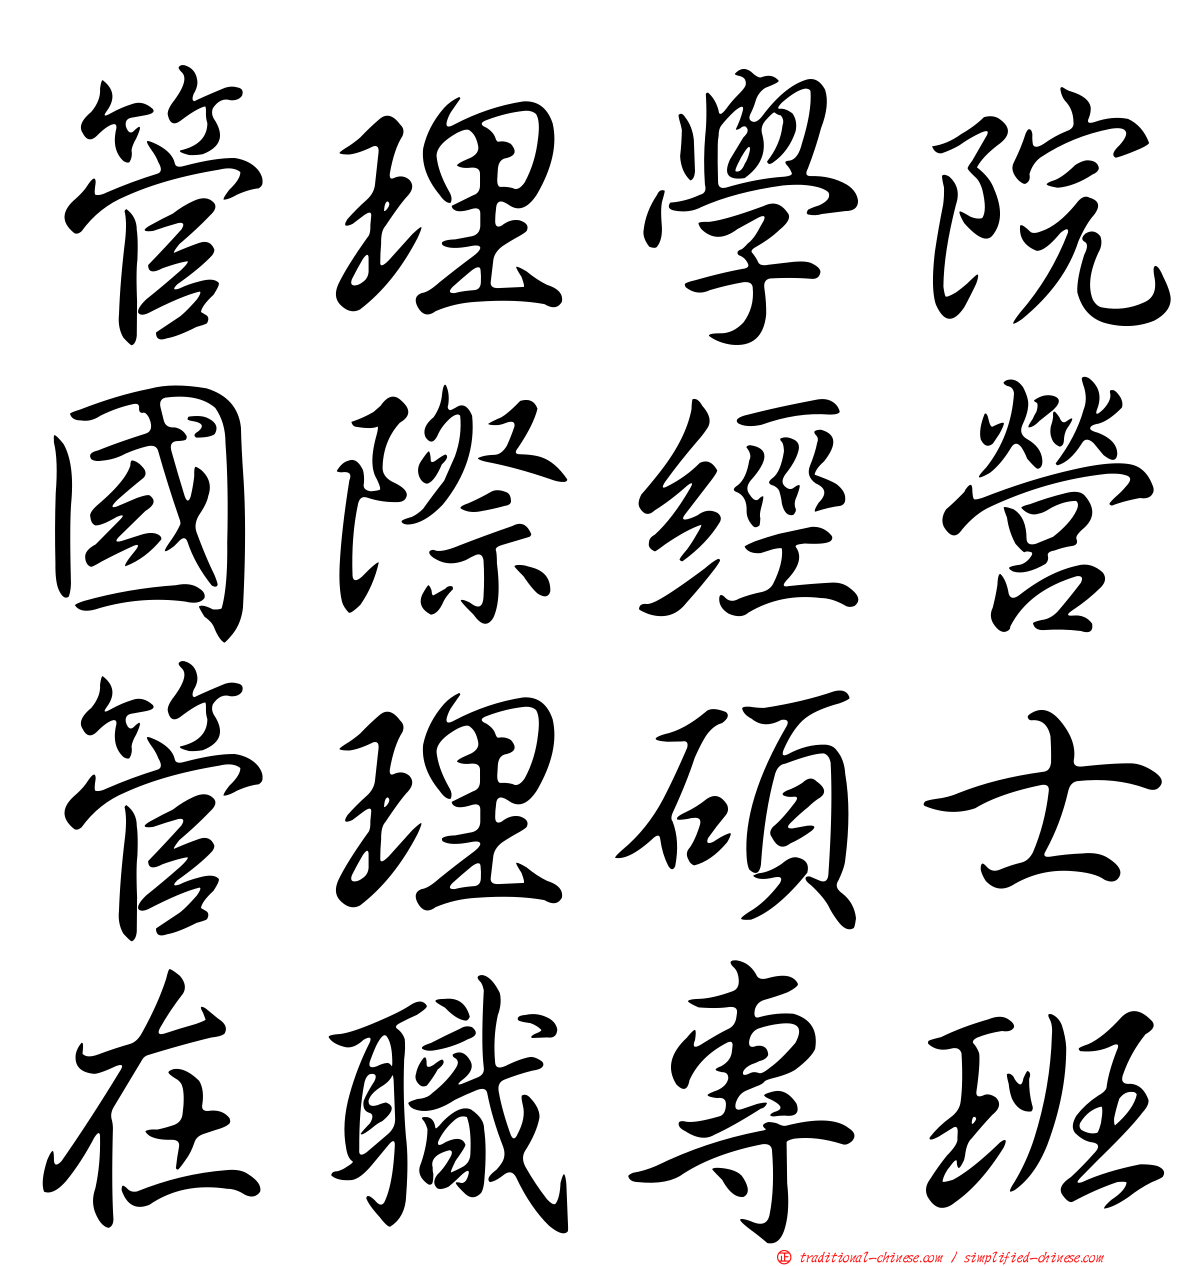 管理學院
國際經營
管理碩士
在職專班
㊣ traditional-chinese.com / simplified-chinese.com